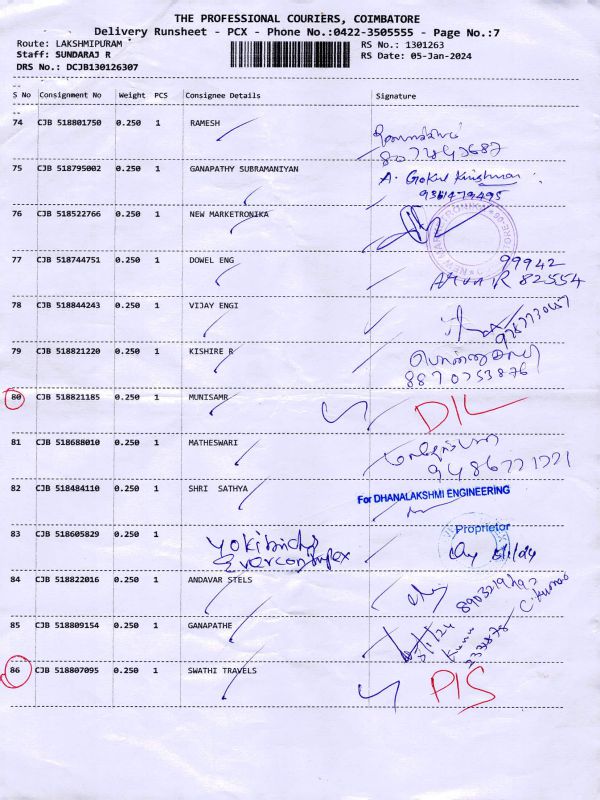 THE PROFESSIONAL COURIERS, COIMBATORE
Delivery Runsheet - PCX - Phone No.:0422-3505555 - Page No.:7
Route: LAKSHMIPURAM RS No.: 1301263
Staff: SUNDARAJ R RS Date: 05-Jan-2024
DRS No.: DCJB130126307
S No Consignment No Weight PCS Consignee Details Signature
74 CJB 518801750 0.250 1 RAMESH
75 CJB 518795002 0.250 1 GANAPATHY SUBRAMANIYAN A. Gokul Krishnan
9361479495
76 CJB 518522766 0.250 1 NEW MARKETRONIKA
77 CJB 518744751 0.250 1 DOWEL ENG 99942
Arun R 82554
78 CJB 518844243 0.250 1 VIJAY ENGI
79 CJB 518821220 0.250 1 KISHIRE R
8870753876
80 CJB 518821185 0.250 1 MUNISAMR DIL
81 CJB 518688010 0.250 1 MATHESWARI
9486771771
82 CJB 518484110 0.250 1 SHRI SATHYA For DHANALAKSHMI ENGINEERING
Proprietor
83 CJB 518605829 0.250 1
84 CJB 518822016 0.250 1 ANDAVAR STELS
85 CJB 518809154 0.250 1 GANAPATHE
86 CJB 518807095 0.250 1 SWATHI TRAVELS PIS